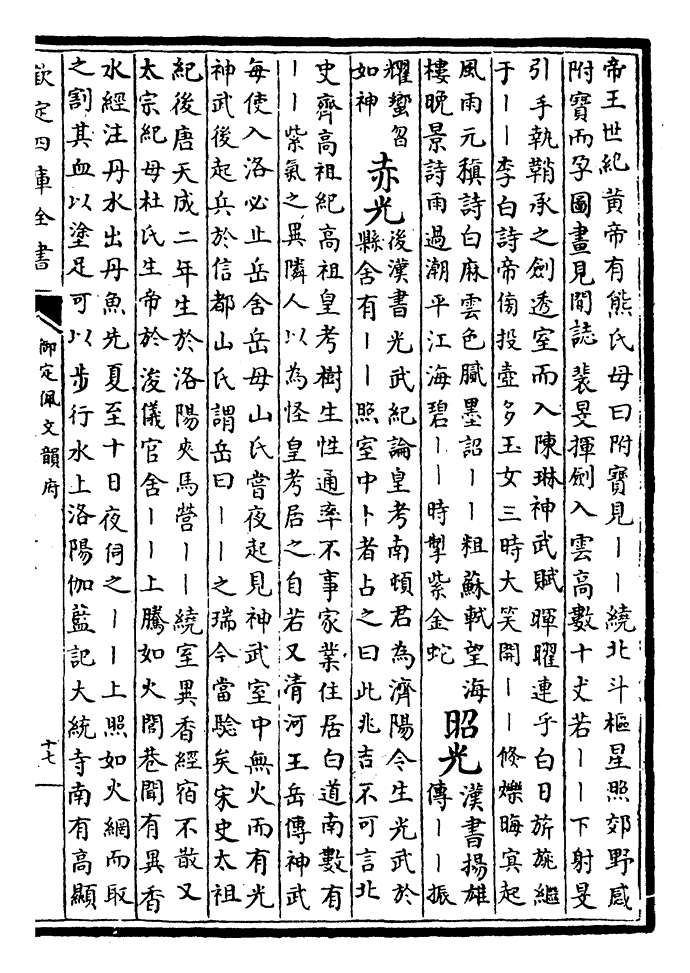 帝王世紀黄帝有熊氏母曰附寶見丨丨繞北斗樞星照郊野感
附寶而孕圖畫見聞誌裴旻揮劍入雲高數十丈若丨丨下射旻
引手執鞘承之劍透室而入陳琳神武賦暉曜連乎白日旂旐繼
于丨丨李白詩帝傍投壺多玉女三時大笑開丨丨倐爍晦冥起
風雨元稹詩白麻雲色膩墨詔丨丨粗蘇軾望海
樓晚景詩雨過潮平江海碧丨丨時掣紫金蛇
昭光
漢書揚雄
傳丨丨振
耀蠁曶
如神
赤光
後漢書光武紀論皇考南頓君為濟陽令生光武於
縣舍有丨丨照室中卜者占之曰此兆吉不可言北
史齊高祖紀高祖皇考樹生性通率不事家業住居白道南數有
丨丨紫氣之異隣人以為怪皇考居之自若又清河王岳傳神武
每使入洛必止岳舍岳母山氏嘗夜起見神武室中無火而有光
神武後起兵於信都山氏謂岳曰丨丨之瑞今當驗矣宋史太祖
紀後唐天成二年生於洛陽夾馬營丨丨繞室異香經宿不散又
太宗紀母杜氏生帝於浚儀官舍丨丨上騰如火閭巷聞有異香
水經注丹水出丹魚先夏至十日夜伺之丨丨上照如火網而取
之割其血以塗足可以步行水上洛陽伽藍記大統寺南有高顯
欽定四庫全書
御定佩文韻府
十七